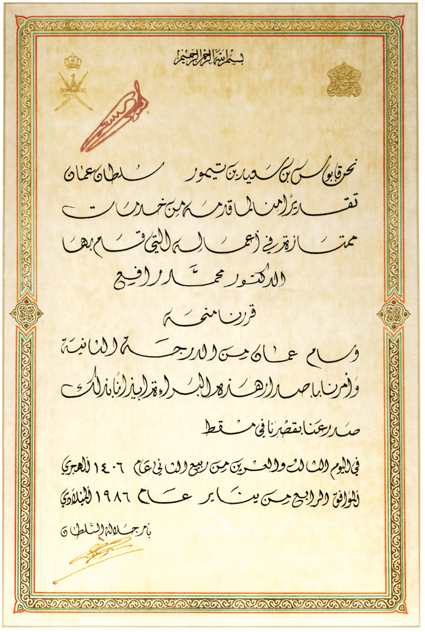 بسم الله الرحمن الرحيم
نحن قابوس بن سعيد بن تيمور سلطان عمان
تقديرا منا لما قدمه من خدمات
ممتازة في أعماله التي قام بها
الدكتور محمد رافع
قررنا منحه
وسام عمان من الدرجة الثانية
وأمرنا باصدار هذه البراءة ايذانا بذلك
صدر عنا بقصرنا في مسقط
في اليوم الثالث والعشرين من ربيع الثاني عام ١٤٠٦ الهجري
الموافق الرابع من يناير عام ١٩٨٦ الميلادي
بامر جلالة السلطان